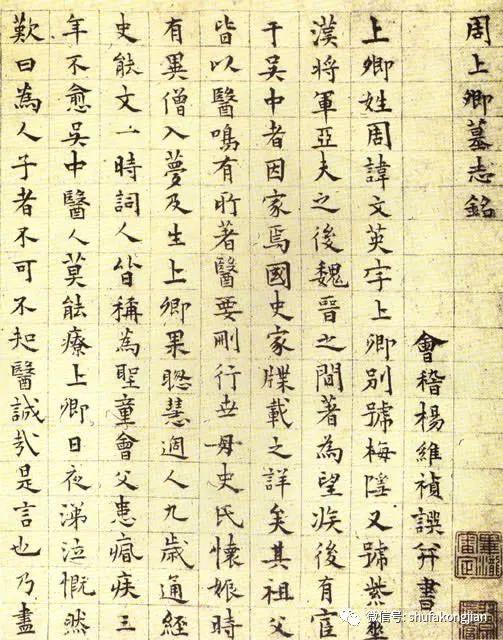 周上卿墓志銘
會稽楊維禎譔并書
上卿姓周諱文英字上卿別號梅隱又號紫
漢將軍亞夫之後魏晉之間著為望族後有宦
于吳中者因家焉國史家牒載之詳矣其祖父
皆以醫鳴有所著醫要刪行世母史氏懷娠時
有異僧入夢及生上卿果聰慧過人九歲通經
史能文一時詞人皆稱為聖童會父患疾三
年不愈吳中醫人莫能療上卿日夜涕泣慨然
歎曰為人子者不可不知醫誠哉是言也乃盡
微信号: shufakongjian